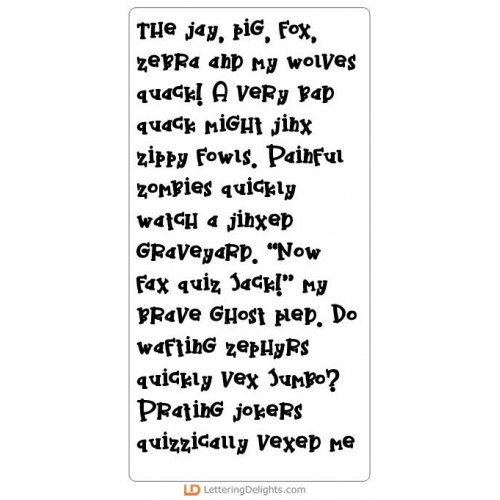 The jay, pig, fox,
zebra and my wolves
quack! A very bad
quack might jinx
zippy fowls. Painful
zombies quickly
watch a jinxed
graveyard. “Now
fax quiz Jack!” my
brave ghost pled. Do
wafting zephyrs
quickly vex Jumbo?
Prating jokers
quizzically vexed me
LD LetteringDelights.com